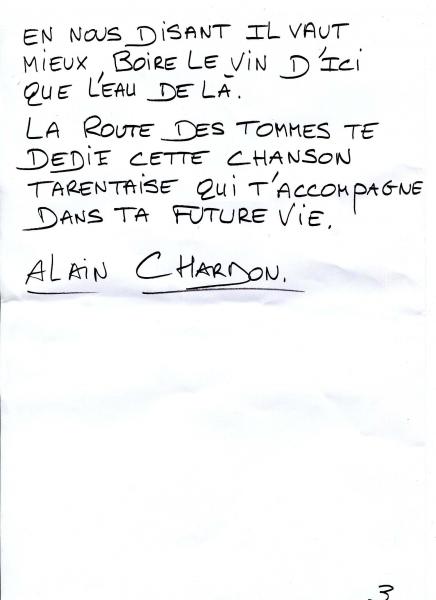 EN NOUS DISANT IL VAUT
MIEUX BOIRE LE VIN D'ICI
QUE L'EAU DE LÀ.
LA ROUTE DES TOMMES TE
DEDIE CETTE CHANSON
TARENTAISE QUI T'ACCOMPAGNE
DANS TA FUTURE VIE.
ALAIN CHARDON.
.3